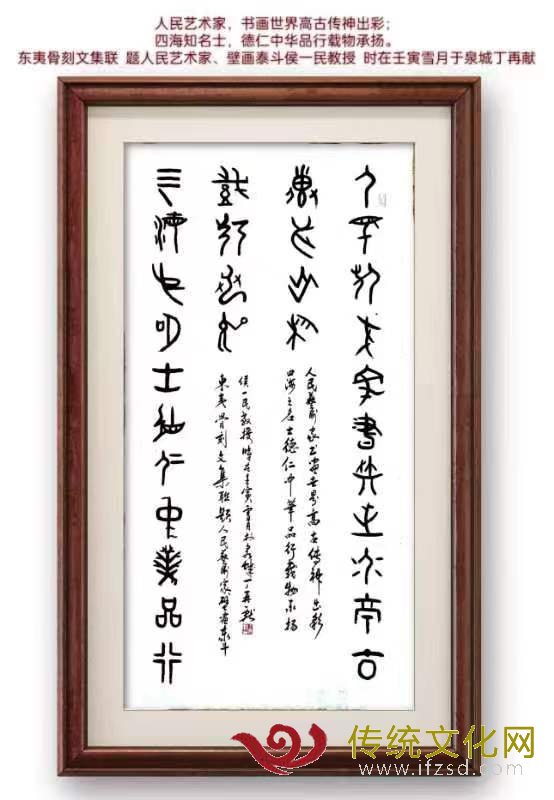 人民艺术家，书画世界高古传神出彩；
四海知名士，德仁中华品行载物承扬。
东夷骨刻文集联 题人民艺术家、壁画泰斗侯一民教授 时在壬寅雪月于泉城丁再献
人民藝術家書畫世界高古
傳神出彩
四海知名士德仁中華品行
載物承揚
人民藝術家書畫世界高古傳神出彩
四海之名士德仁中華品行載物承揚
東夷骨刻文集聯題人民藝術家壁畫泰斗
侯一民教授時在壬寅雪月於泉城丁再獻
传统文化网
www.ifzsd.com